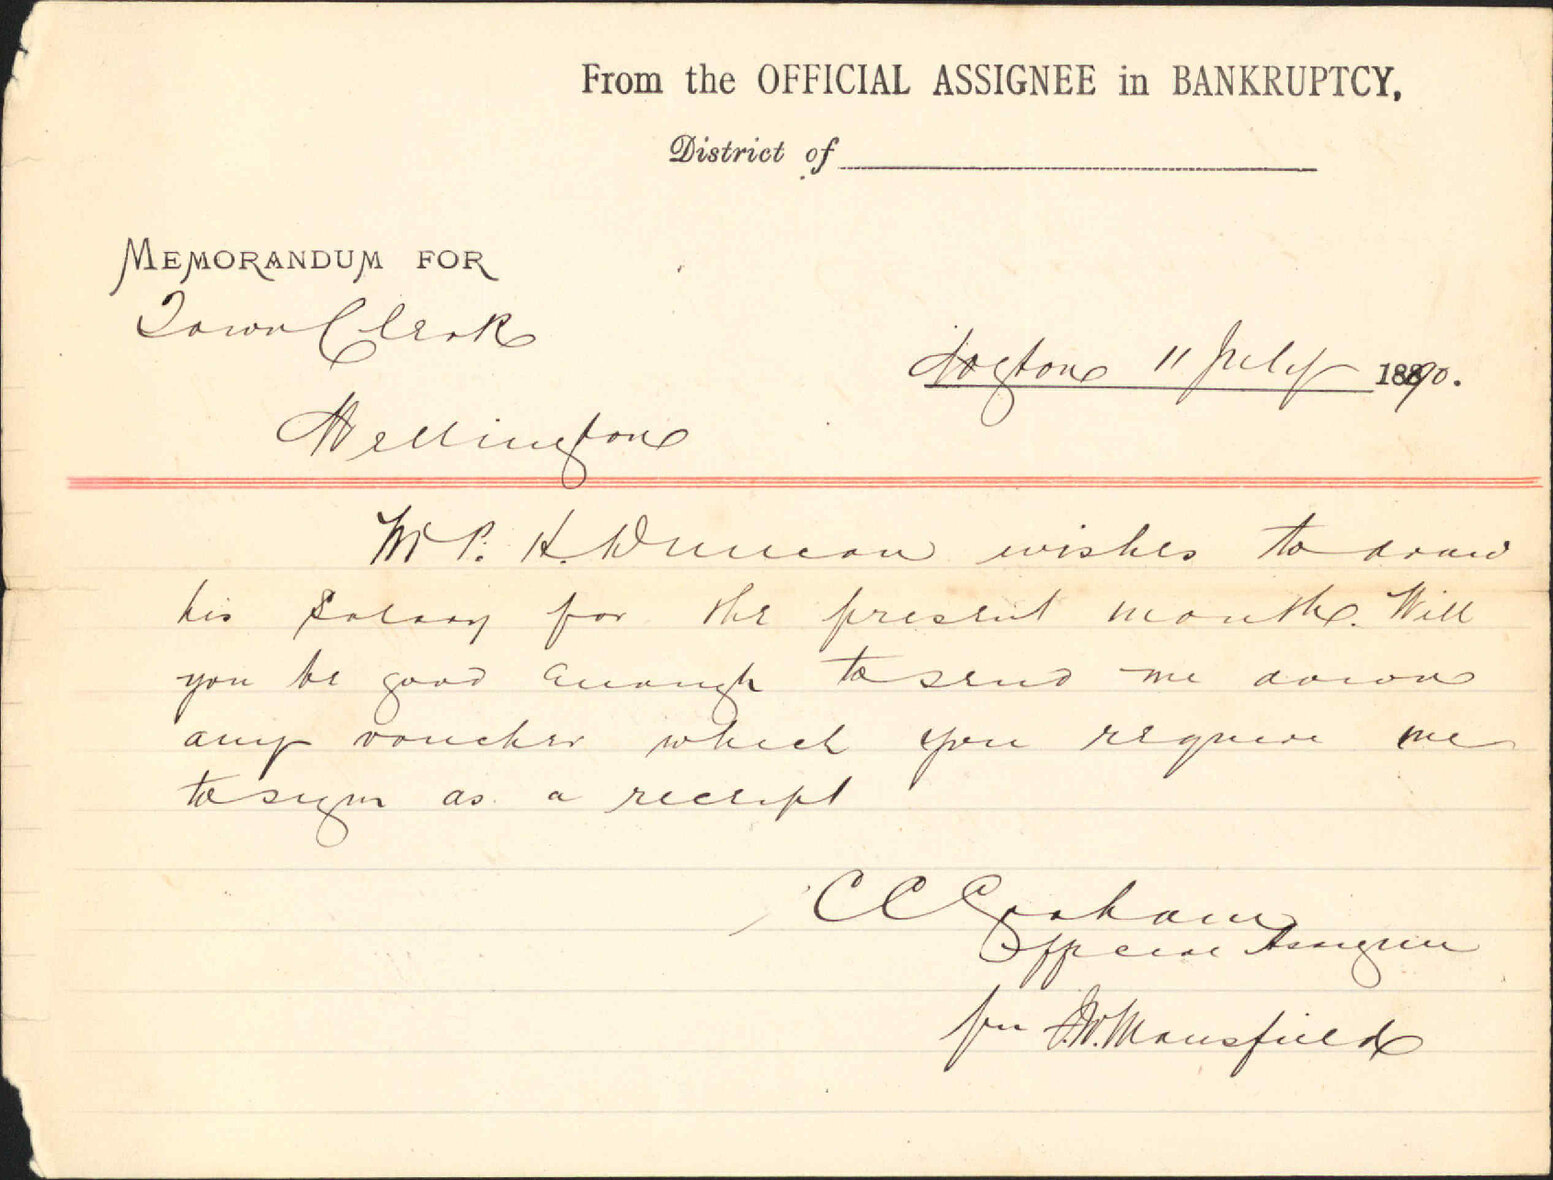 From the OFFICIAL ASSIGNEE in BANKRUPTCY,
District of
MEMORANDUM FOR
Town Clerk
Wgton 11 July 1890.
Wellington
Mr P. H. Duncan wishes to draw
his salary for the present month. Will
you be good enough to send me down
any voucher which you require me
to sign as a receipt
C C Graham
Official Assignee
per J.W. Mansfield